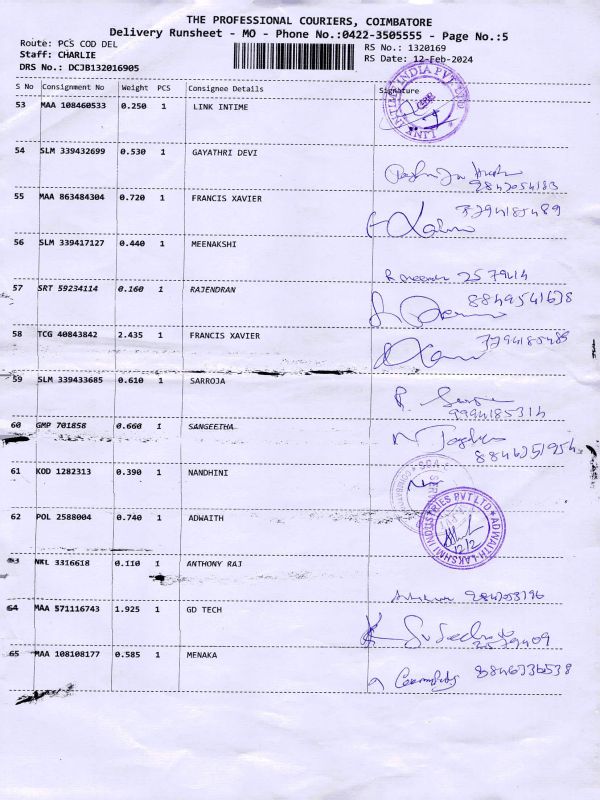 THE PROFESSIONAL COURIERS, COIMBATORE
Delivery Runsheet - MO - Phone No.:0422-3505555 - Page No.:5
Route: PCS COD DEL
RS No.: 1320169
Staff: CHARLIE
RS Date: 12-Feb-2024
DRS No.: DCJB132016905
S No Consignment No Weight PCS Consignee Details Signature
53 MAA 108460533 0.250 1 LINK INTIME
54 SLM 339432699 0.530 1 GAYATHRI DEVI
55 MAA 863484304 0.720 1 FRANCIS XAVIER
7794185489
56 SLM 339417127 0.440 1 MEENAKSHI
2579414
57 SRT 59234114 0.160 1 RAJENDRAN
58 TCG 40843842 2.435 1 FRANCIS XAVIER
7794185489
59 SLM 339433685 0.610 1 SARROJA
9994185314
60 GMP 701858 0.660 1 SANGEETHA
61 KOD 1282313 0.390 1 NANDHINI
62 POL 2588004 0.740 1 ADWAITH
ADWAITH LAKSHMI INDUSTRIES PVT LTD
12/2
63 NKL 3316618 0.110 1 ANTHONY RAJ
64 MAA 571116743 1.925 1 GD TECH
65 MAA 108108177 0.585 1 MENAKA